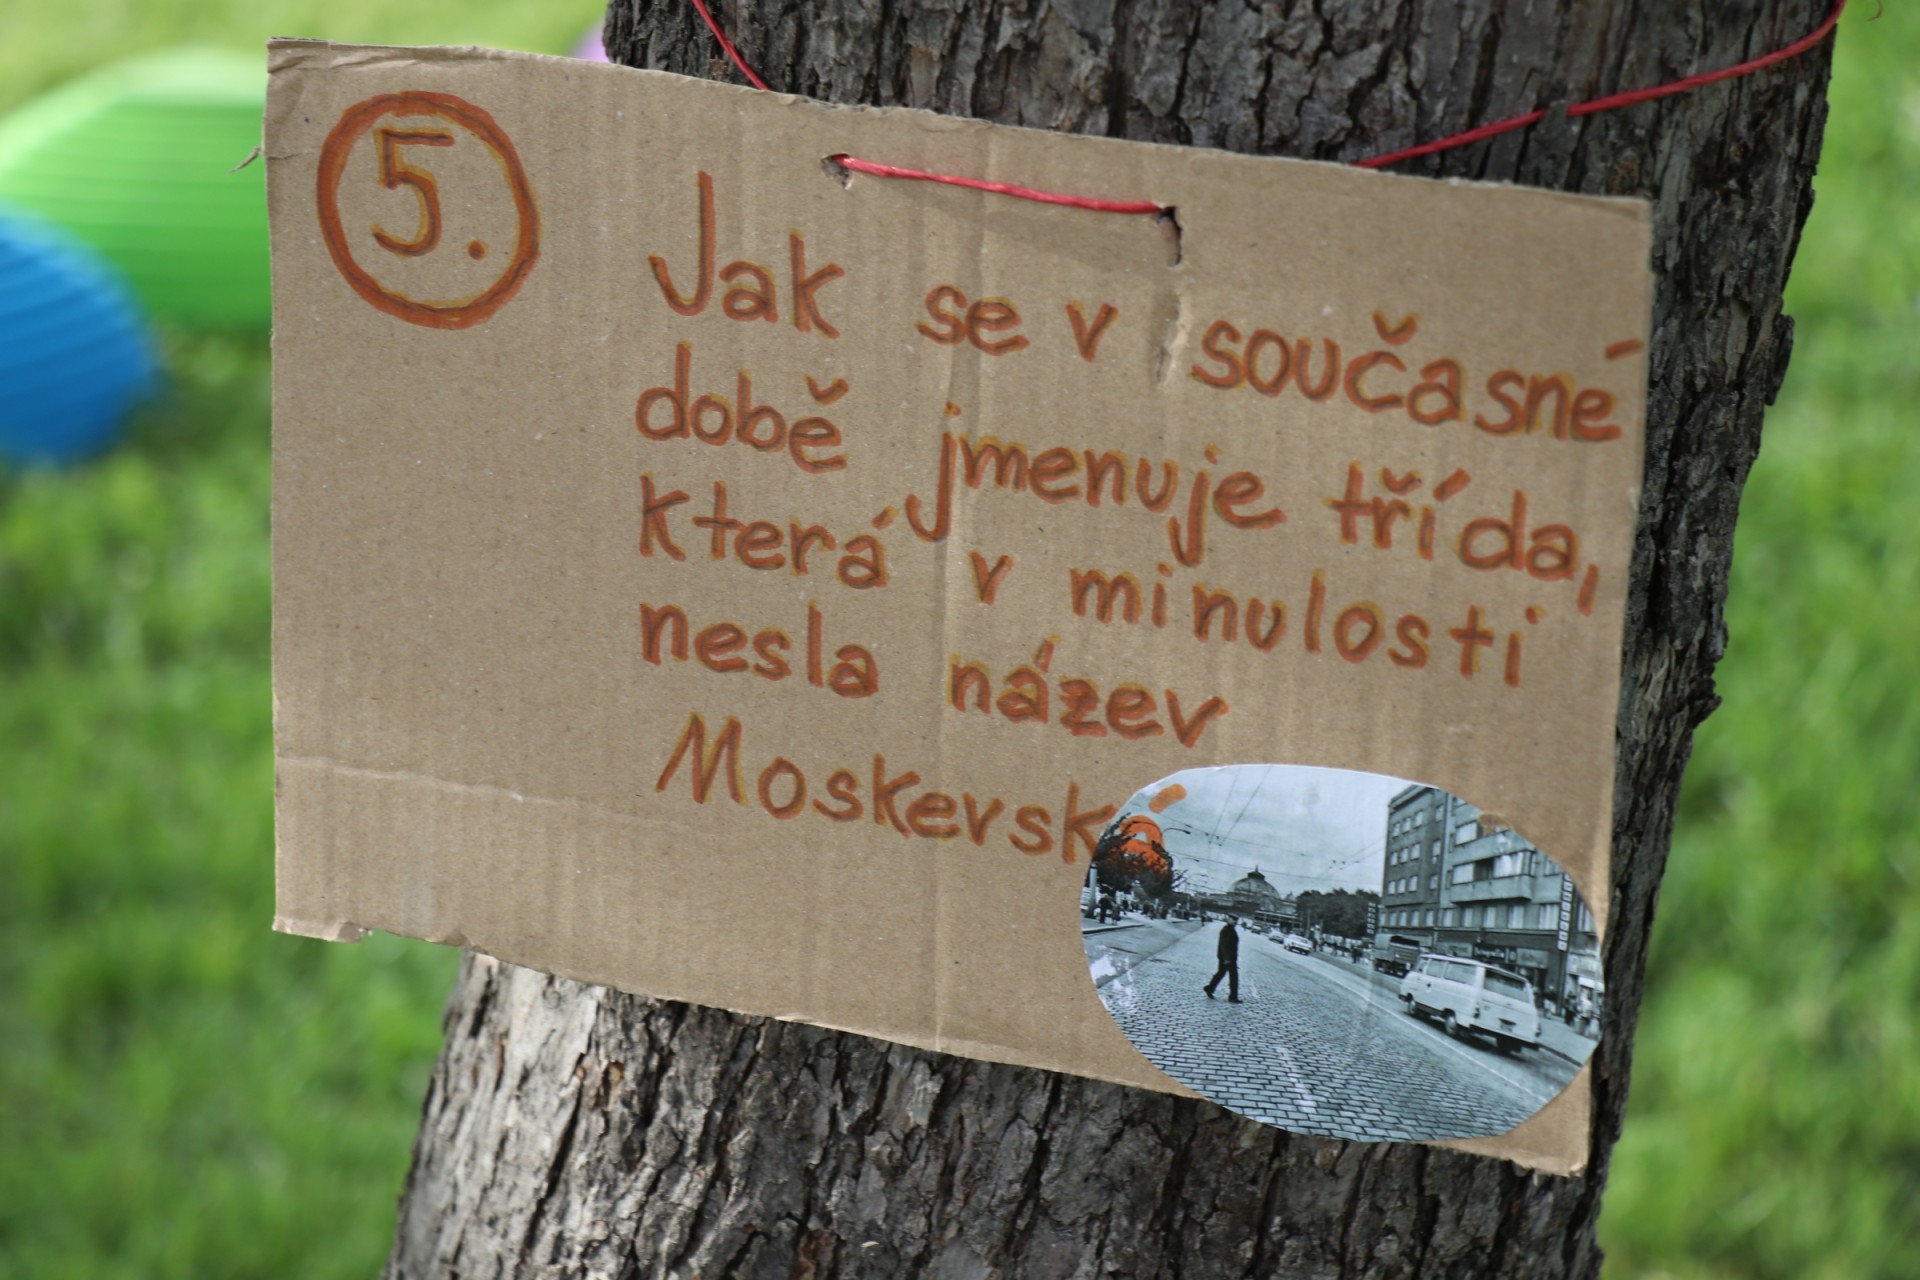 5.
Jak se v současné
době jmenuje třída,
která v minulosti
nesla název
Moskevská